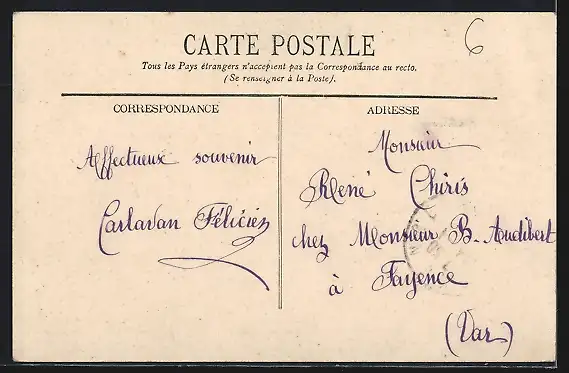 6
CARTE POSTALE
Tous les Pays étrangers n'acceptent pas la Correspondance au recto.
(Se renseigner à la Poste).
CORRESPONDANCE
Affectueux souvenir
Carlavan Félicien
ADRESSE
Monsieur
René Chiris
chez Monsieur B. Audibert
à Fayence
(Var)